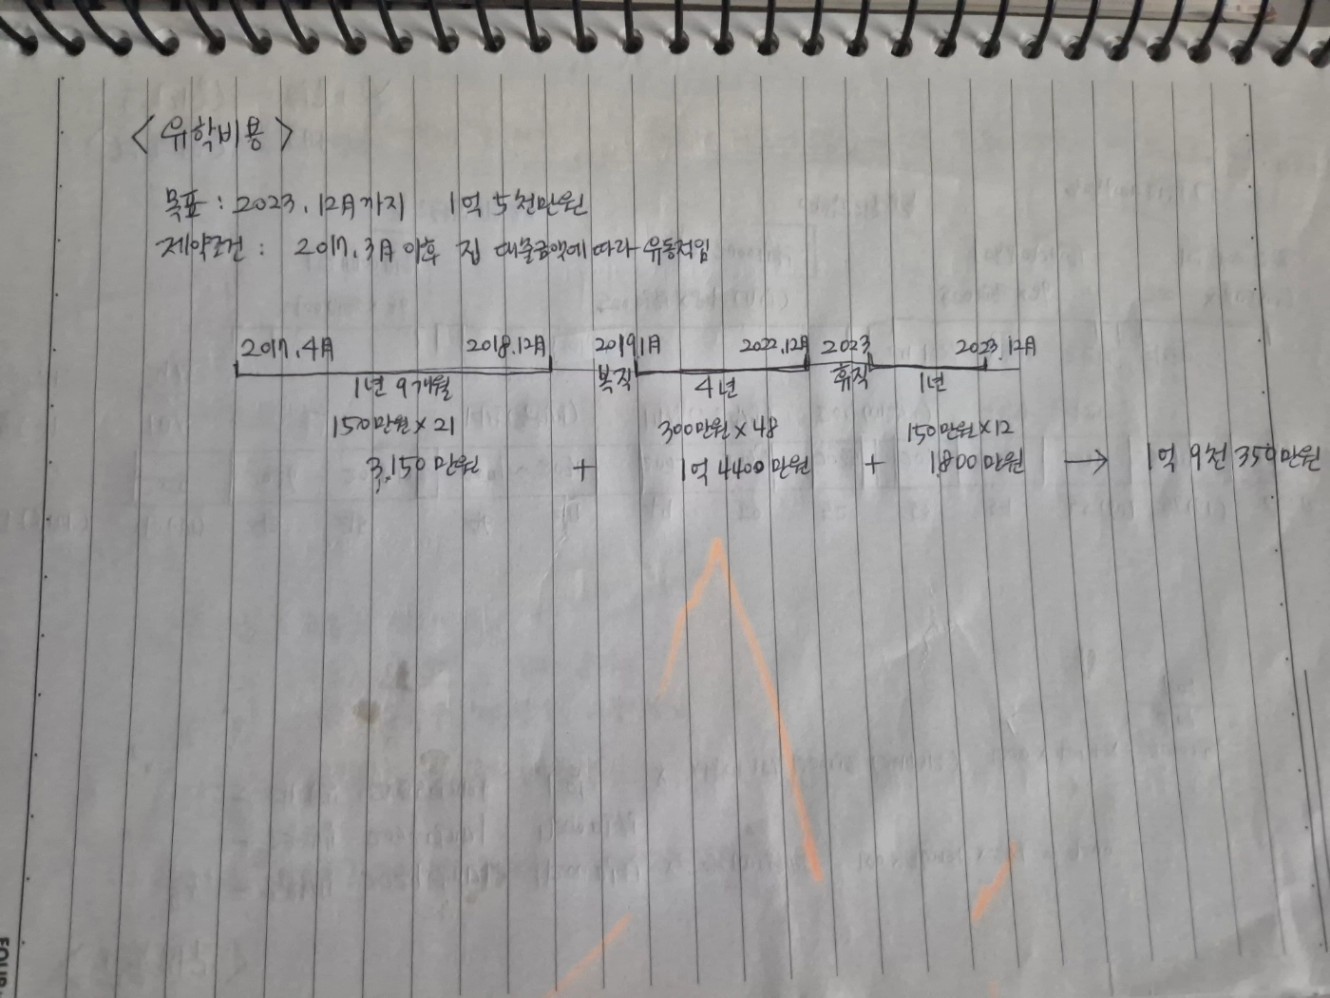 < 유학비용 >
목표 : 2023.12月까지 1억 5천만원
제약조건 : 2017.3月이후 집 대출금액에 따라 유동적임
2017.4月 2018.12月 2019 1月 2022.12月 2023 2023.12月
1년 9개월 복직 4년 휴직 1년
150만원×21 300만원×48 150만원×12
3,150만원 + 1억 4400만원 + 1,800만원 → 1억 9천 350만원